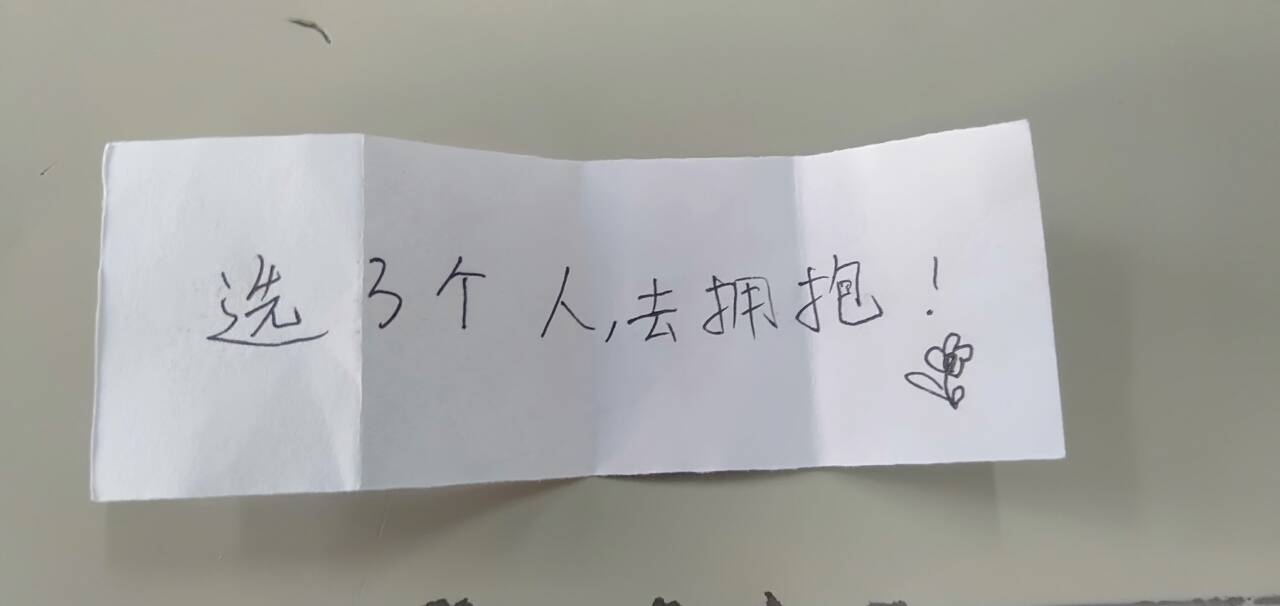 选3个人,去拥抱!